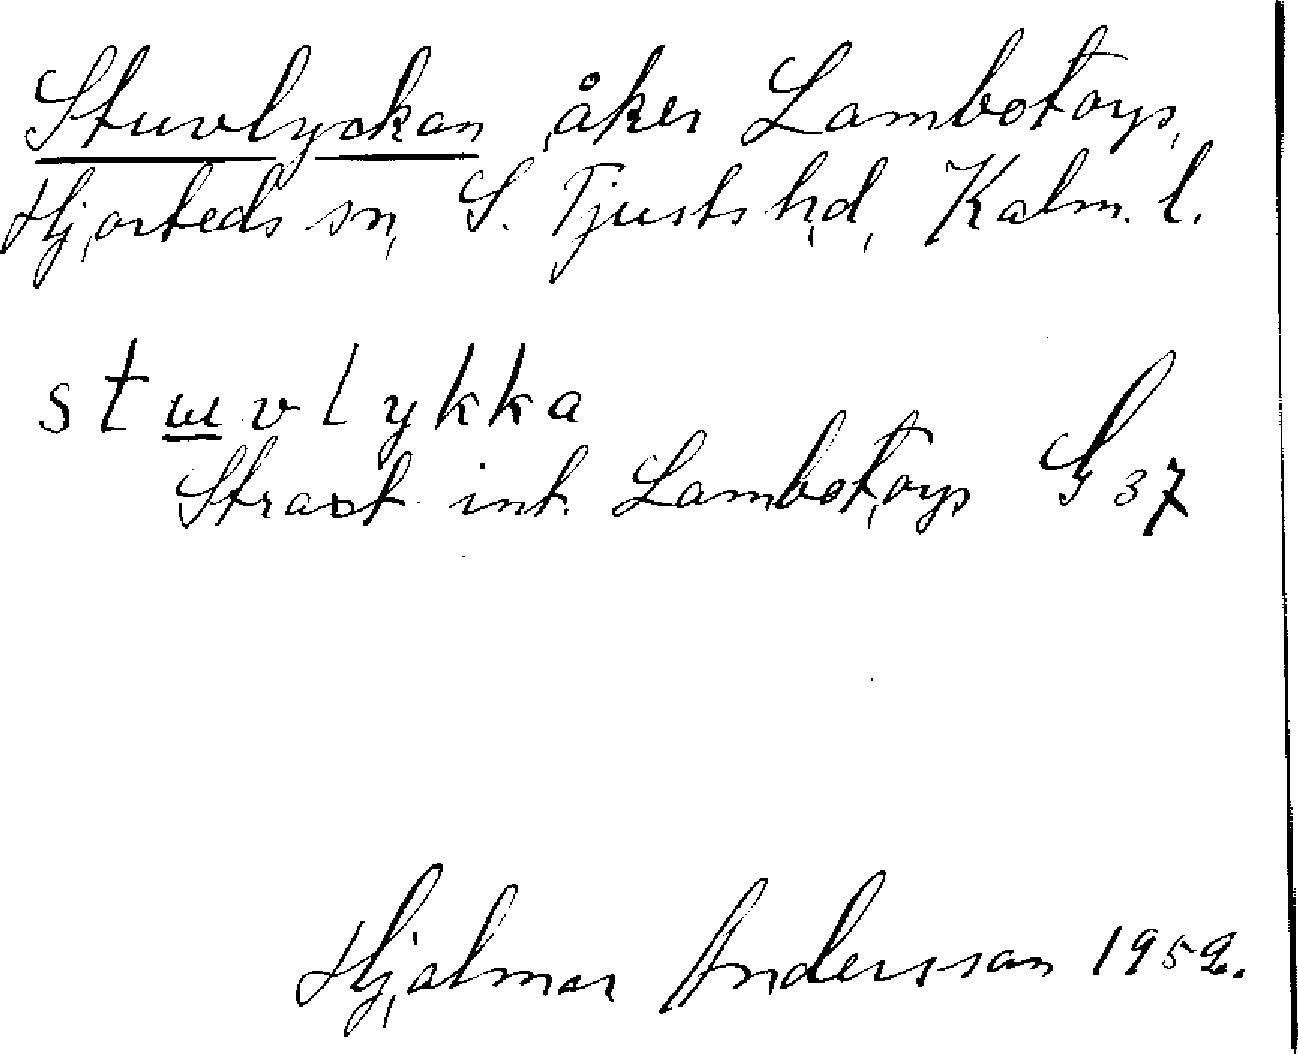 Stuvlyckan åker Lambotorp,
Hjorteds sn, S. Tjusts hd, Kalm. l.
stɯvlykka
Strax int. Lambotorp G 37
Hjalmar Andersson 1952.